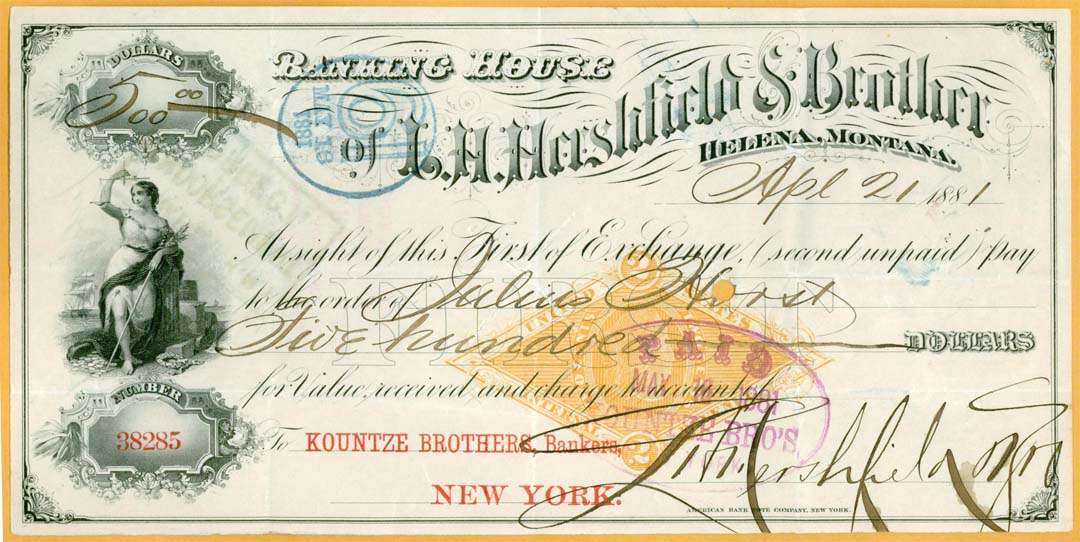 DOLLARS
500 00
BANKING HOUSE
of L. H. Hershfield & Brother
HELENA, MONTANA.
Apl 21 1881
At sight of this First of Exchange, (second unpaid) Pay
to the order of Julius Hurst
Five hundred DOLLARS
FIRST
UNITED STATES
INTERNAL
2
2
PAID
MAY 1881
KOUNTZE BRO'S.
for Value received and charge to account of
NUMBER
38285
To KOUNTZE BROTHERS, Bankers,
NEW YORK.
L. H. Hershfield & Bro
AMERICAN BANK NOTE COMPANY, NEW YORK.